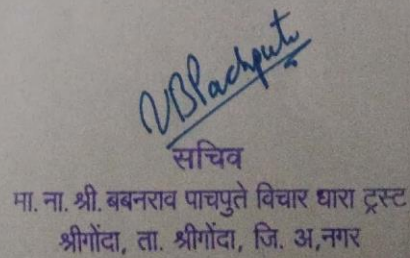 VBPachpute
सचिव
मा. ना. श्री. बबनराव पाचपुते विचार धारा ट्रस्ट
श्रीगोंदा, ता. श्रीगोंदा, जि. अ,नगर